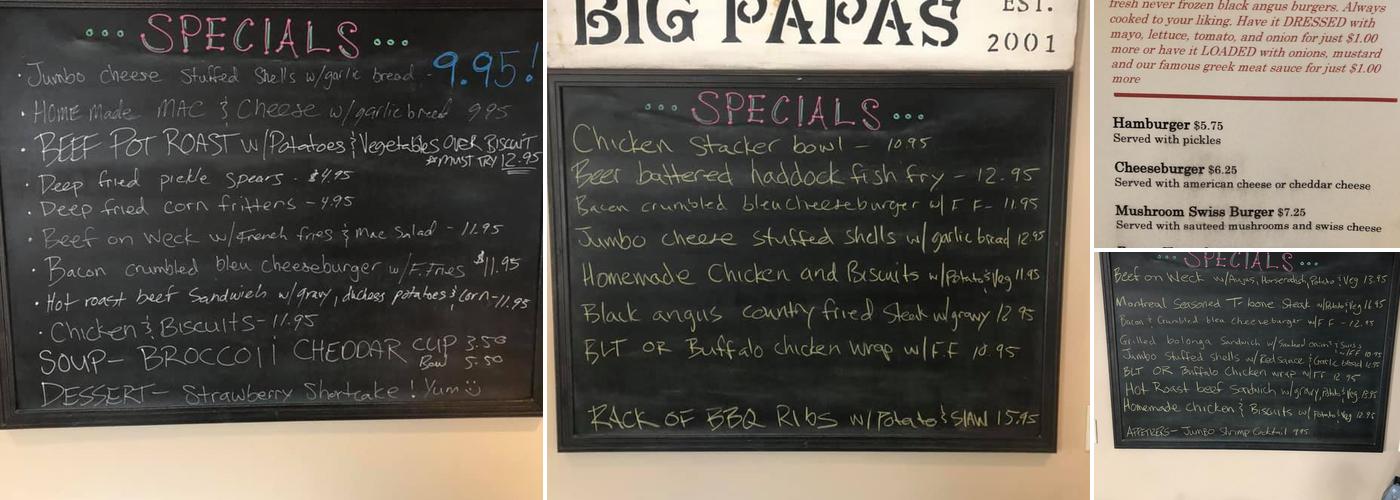 SPECIALS
Jumbo cheese Stuffed Shells w/garlic bread - 9.95!
HOME made MAC & Cheese w/garlic bread 9.95
BEEF POT ROAST w/Potatoes & Vegetables OVER BISCUIT
*MUST TRY 12.95
Deep fried pickle spears - $4.95
Deep fried corn fritters - 4.95
Beef on Weck w/French fries & Mac Salad - 11.95
Bacon crumbled bleu cheeseburger w/F.Fries $11.95
Hot roast beef Sandwich w/gravy, duchess potatoes & Corn - 11.95
Chicken & Biscuits - 11.95
SOUP - BROCCOli CHEDDAR CUP 3.50
Bowl 5.50
DESSERT - Strawberry Shortcake! Yum
BIG PAPAS
EST.
2001
SPECIALS
Chicken Stacker bowl - 10.95
Beer battered haddock fish fry - 12.95
Bacon crumbled bleu Cheeseburger w/ F F - 11.95
Jumbo cheese stuffed shells w/ garlic bread 12.95
Homemade Chicken and Biscuits w/Potato & Veg 11.95
Black angus country fried Steak w/gravy 12.95
BLT OR Buffalo chicken wrap w/F.F 10.95
RACK OF BBQ RIBS w/Potato & SlAW 15.95
fresh never frozen black angus burgers. Always
cooked to your liking. Have it DRESSED with
mayo, lettuce, tomato, and onion for just $1.00
more or have it LOADED with onions, mustard
and our famous greek meat sauce for just $1.00
more
Hamburger $5.75
Served with pickles
Cheeseburger $6.25
Served with american cheese or cheddar cheese
Mushroom Swiss Burger $7.25
Served with sauteed mushrooms and swiss cheese
SPECIALS
Beef on Weck w/Aujus, Horseradish, Potato & Veg 13.95
Montreal Seasoned T-bone Steak w/Potato & Veg 16.95
Bacon & Crumbled bleu cheeseburger w/F F - 12.95
Grilled bologna Sandwich w/Sauteed onion & Swiss
w/FF 10.95
Jumbo Stuffed shells w/Red Sauce & Garlic bread 12.95
BLT OR Buffalo Chicken wrap w/FF 12.95
Hot Roast beef Sandwich w/gravy, Potato & Veg 13.95
Homemade Chicken & Biscuits w/Potato & Veg 12.95
APPETIZERS - Jumbo Shrimp Cocktail 9.95